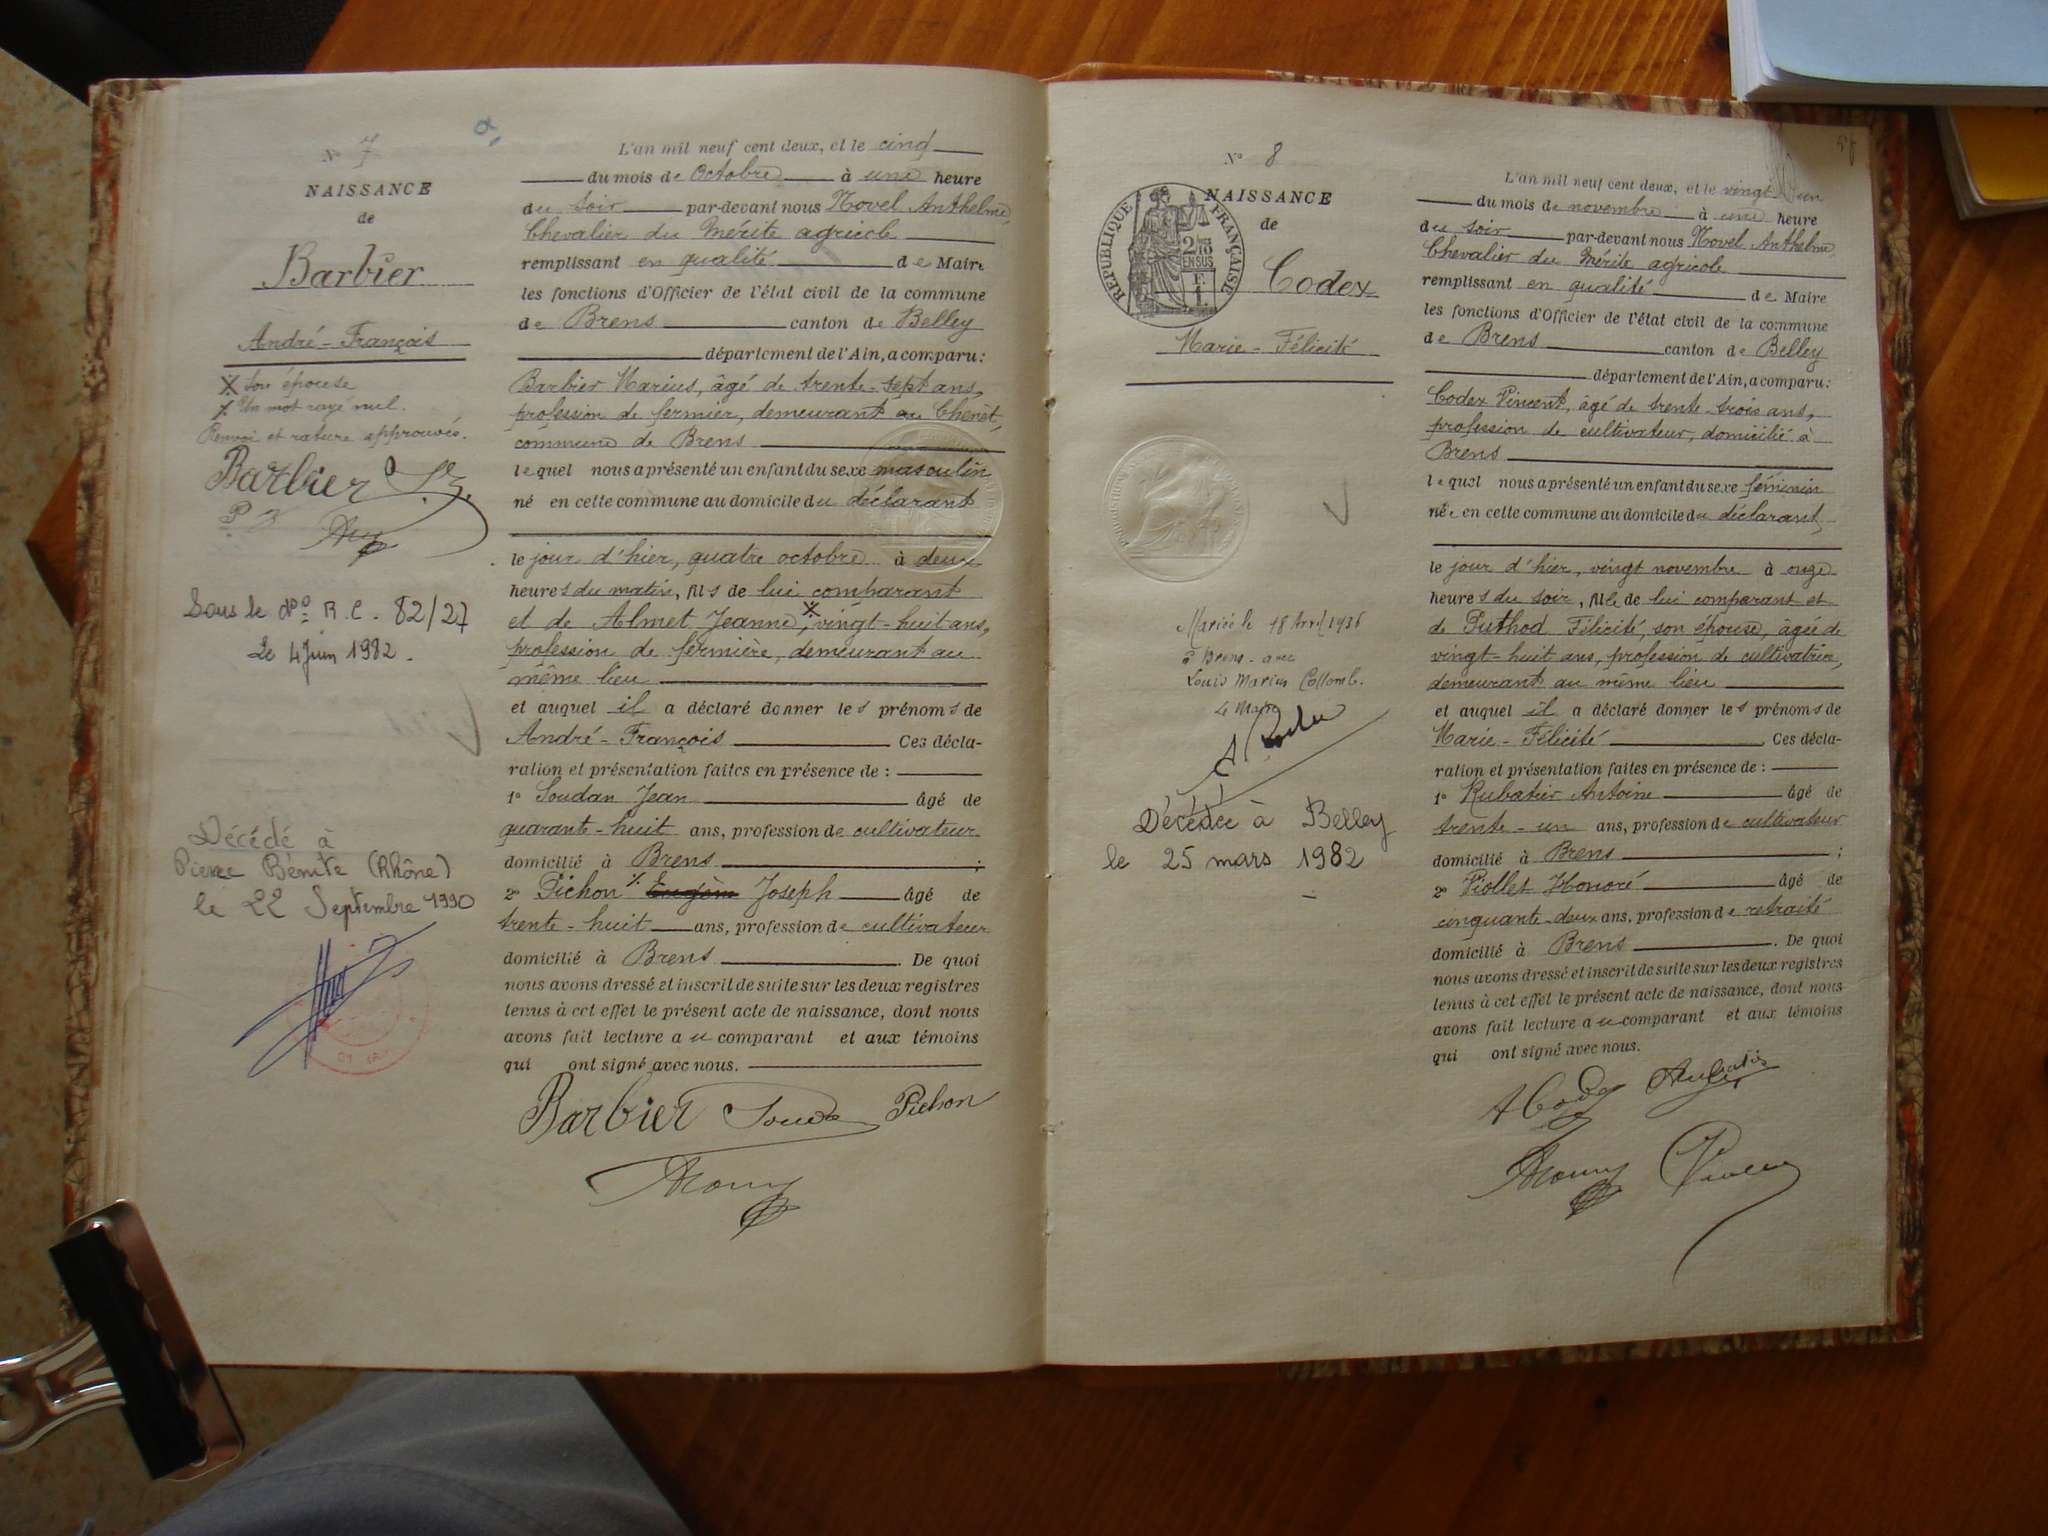 N° 7
NAISSANCE
de
Barbier
André-François
X son épouse
X Un mot rayé nul.
Renvoi et rature approuvés.
Barbier
Sous le N° R.C. 82/27
Le 4 Juin 1982.
Décédé à
Pierre Bénite (Rhône)
le 22 Septembre 1990
L'an mil neuf cent deux, et le cinq
du mois de Octobre à une heure
du soir par-devant nous Novel Anthelme,
Chevalier du Mérite agricole
remplissant en qualité de Maire
les fonctions d'Officier de l'état civil de la commune
de Brens canton de Belley
département de l'Ain, a comparu:
Barbier Marius, âgé de trente-sept ans,
profession de fermier, demeurant au Chenêt,
commune de Brens
lequel nous a présenté un enfant du sexe masculin
né en cette commune au domicile du déclarant
le jour d'hier, quatre octobre à deux
heures du matin, fils de lui comparant
et de Almet Jeanne X, vingt-huit ans,
profession de fermière, demeurant au
même lieu
et auquel il a déclaré donner les prénoms de
André-François Ces décla-
ration et présentation faites en présence de :
1° Soudan Jean âgé de
quarante-huit ans, profession de cultivateur
domicilié à Brens ;
2° Pichon Eugène Joseph âgé de
trente-huit ans, profession de cultivateur
domicilié à Brens . De quoi
nous avons dressé et inscrit de suite sur les deux registres
tenus à cet effet le présent acte de naissance, dont nous
avons fait lecture au comparant et aux témoins
qui ont signé avec nous.
Barbier Pichon
N° 8
NAISSANCE
de
RÉPUBLIQUE FRANÇAISE
2/10 EN SUS
Codex
Marie-Félicité
Mariée le 18 Avril 1936
à Brens avec
Louis Marius Collomb.
Le Maire
Décédée à Belley
le 25 mars 1982
L'an mil neuf cent deux, et le vingt-un
du mois de novembre à une heure
du soir par-devant nous Novel Anthelme
Chevalier du Mérite agricole
remplissant en qualité de Maire
les fonctions d'Officier de l'état civil de la commune
de Brens canton de Belley
département de l'Ain, a comparu:
Codex Vincent, âgé de trente-trois ans,
profession de cultivateur, domicilié à
Brens
lequel nous a présenté un enfant du sexe féminin
née en cette commune au domicile du déclarant,
le jour d'hier, vingt novembre à onze
heures du soir, fille de lui comparant et
de Puthod Félicité, son épouse, âgée de
vingt-huit ans, profession de cultivatrice,
demeurant au même lieu
et auquel il a déclaré donner les prénoms de
Marie-Félicité Ces décla-
ration et présentation faites en présence de :
1° Rubatier Antoine âgé de
trente-un ans, profession de cultivateur
domicilié à Brens ;
2° Piollet Honoré âgé de
cinquante-deux ans, profession de retraité
domicilié à Brens . De quoi
nous avons dressé et inscrit de suite sur les deux registres
tenus à cet effet le présent acte de naissance, dont nous
avons fait lecture au comparant et aux témoins
qui ont signé avec nous.